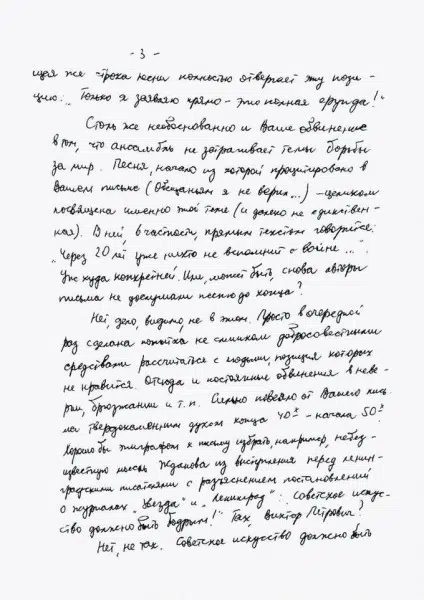 - 3 -
щая же строка песни полностью отвергает эту пози-
цию: "Только я заявляю прямо - это полная ерунда!"
Столь же необоснованно и Ваше обвинение
в том, что ансамбль не затрагивает темы борьбы
за мир. Песня, начало из которой процитировано в
Вашем письме (Обещаньям я не верил...) - целиком
посвящена именно этой теме (и далеко не единствен-
ная). В ней, в частности, прямым текстом говорится:
"Через 20 лет уже никто не вспомнит о войне...".
Уж куда конкретней. Или, может быть, снова авторы
письма не дослушали песню до конца?
Нет, дело, видимо, не в этом. Просто в очередной
раз сделана попытка не слишком добросовестными
средствами рассчитаться с людьми, позиция которых
не нравится. Отсюда и постоянные обвинения в неве-
рии, брюзжании и т.п. Сильно повеяло от Вашего пись-
ма твердокаменным духом конца 40х - начала 50х.
Хорошо бы эпиграфом к письму избрать, например, небез-
известную мысль Жданова из выступления перед ленин-
градскими писателями с разъяснением постановлений
о журналах "Звезда" и "Ленинград": "Советское искус-
ство должно быть бодрым!" Так, Виктор Петрович?
Нет, не так. Советское искусство должно быть